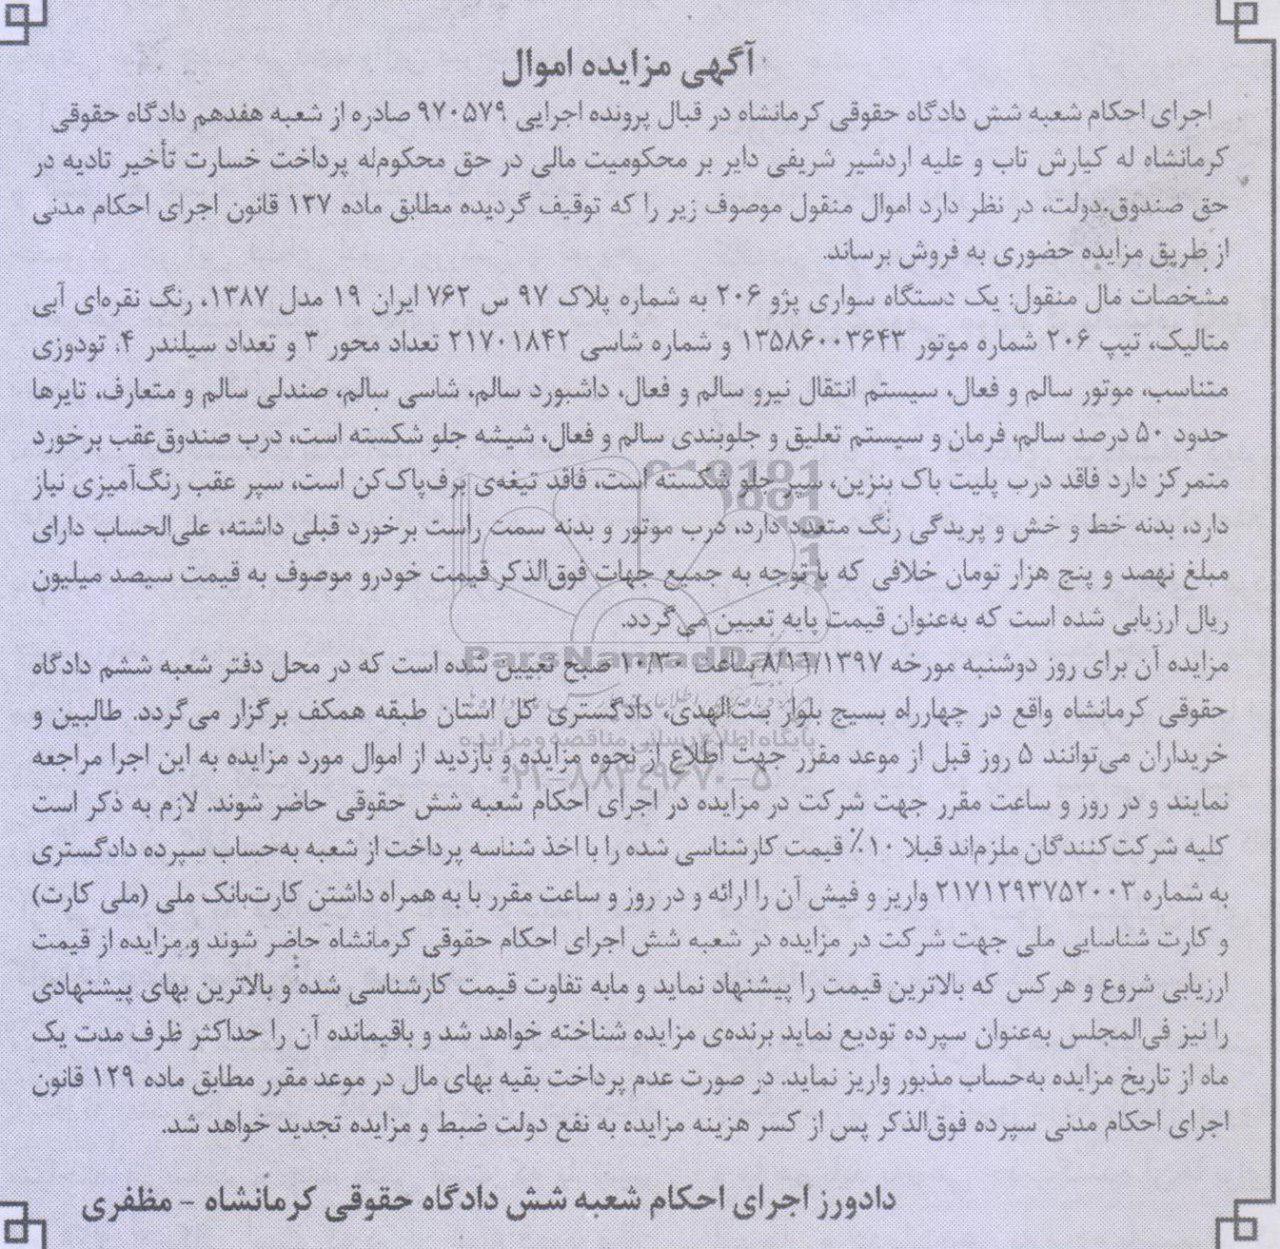 آگهی مزایده اموال
اجرای احکام شعبه شش دادگاه حقوقی کرمانشاه در قبال پرونده اجرایی ۹۷۰۵۷۹ صادره از شعبه هفدهم دادگاه حقوقی
کرمانشاه له کیارش تاب و علیه اردشیر شریفی دایر بر محکومیت مالی در حق محکوم‌له پرداخت خسارت تأخیر تادیه در
حق صندوق دولت، در نظر دارد اموال منقول موصوف زیر را که توقیف گردیده مطابق ماده ۱۳۷ قانون اجرای احکام مدنی
از طریق مزایده حضوری به فروش برساند.
مشخصات مال منقول: یک دستگاه سواری پژو ۲۰۶ به شماره پلاک ۹۷ س ۷۶۲ ایران ۱۹ مدل ۱۳۸۷، رنگ نقره‌ای آبی
متالیک، تیپ ۲۰۶ شماره موتور ۱۳۵۸۶۰۰۳۶۴۳ و شماره شاسی ۲۱۷۰۱۸۴۲ تعداد محور ۳ و تعداد سیلندر ۴. تودوزی
متناسب، موتور سالم و فعال، سیستم انتقال نیرو سالم و فعال، داشبورد سالم، شاسی سالم، صندلی سالم و متعارف، تایرها
حدود ۵۰ درصد سالم، فرمان و سیستم تعلیق و جلوبندی سالم و فعال، شیشه جلو شکسته است، درب صندوق‌عقب برخورد
متمرکز دارد فاقد درب پلیت باک بنزین، سپر جلو شکسته است، فاقد تیغه‌ی برف‌پاک‌کن است، سپر عقب رنگ‌آمیزی نیاز
دارد، بدنه خط و خش و پریدگی رنگ متعدد دارد، درب موتور و بدنه سمت راست برخورد قبلی داشته، علی‌الحساب دارای
مبلغ نهصد و پنج هزار تومان خلافی که با توجه به جمیع جهات فوق‌الذکر قیمت خودرو موصوف به قیمت سیصد میلیون
ریال ارزیابی شده است که به‌عنوان قیمت پایه تعیین می‌گردد.
مزایده آن برای روز دوشنبه مورخه ۸/۱۱/۱۳۹۷ ساعت ۱۰/۳۰ صبح تعیین شده است که در محل دفتر شعبه ششم دادگاه
حقوقی کرمانشاه واقع در چهارراه بسیج بلوار بنت‌الهدی، دادگستری کل استان طبقه همکف برگزار می‌گردد. طالبین و
خریداران می‌توانند ۵ روز قبل از موعد مقرر جهت اطلاع از نحوه مزایده و بازدید از اموال مورد مزایده به این اجرا مراجعه
نمایند و در روز و ساعت مقرر جهت شرکت در مزایده در اجرای احکام شعبه شش حقوقی حاضر شوند. لازم به ذکر است
کلیه شرکت‌کنندگان ملزم‌اند قبلا ۱۰٪ قیمت کارشناسی شده را با اخذ شناسه پرداخت از شعبه به‌حساب سپرده دادگستری
به شماره ۲۱۷۱۲۹۳۷۵۲۰۰۳ واریز و فیش آن را ارائه و در روز و ساعت مقرر با به همراه داشتن کارت‌بانک ملی (ملی کارت)
و کارت شناسایی ملی جهت شرکت در مزایده در شعبه شش اجرای احکام حقوقی کرمانشاه حاضر شوند و مزایده از قیمت
ارزیابی شروع و هرکس که بالاترین قیمت را پیشنهاد نماید و مابه تفاوت قیمت کارشناسی شده و بالاترین بهای پیشنهادی
را نیز فی‌المجلس به‌عنوان سپرده تودیع نماید برنده‌ی مزایده شناخته خواهد شد و باقیمانده آن را حداکثر ظرف مدت یک
ماه از تاریخ مزایده به‌حساب مذبور واریز نماید. در صورت عدم پرداخت بقیه بهای مال در موعد مقرر مطابق ماده ۱۲۹ قانون
اجرای احکام مدنی سپرده فوق‌الذکر پس از کسر هزینه مزایده به نفع دولت ضبط و مزایده تجدید خواهد شد.
دادورز اجرای احکام شعبه شش دادگاه حقوقی کرمانشاه - مظفری
ParsNamadData
پایگاه اطلاع رسانی مناقصه و مزایده
۰۲۱-۸۸۳۴۹۶۷۰-۵